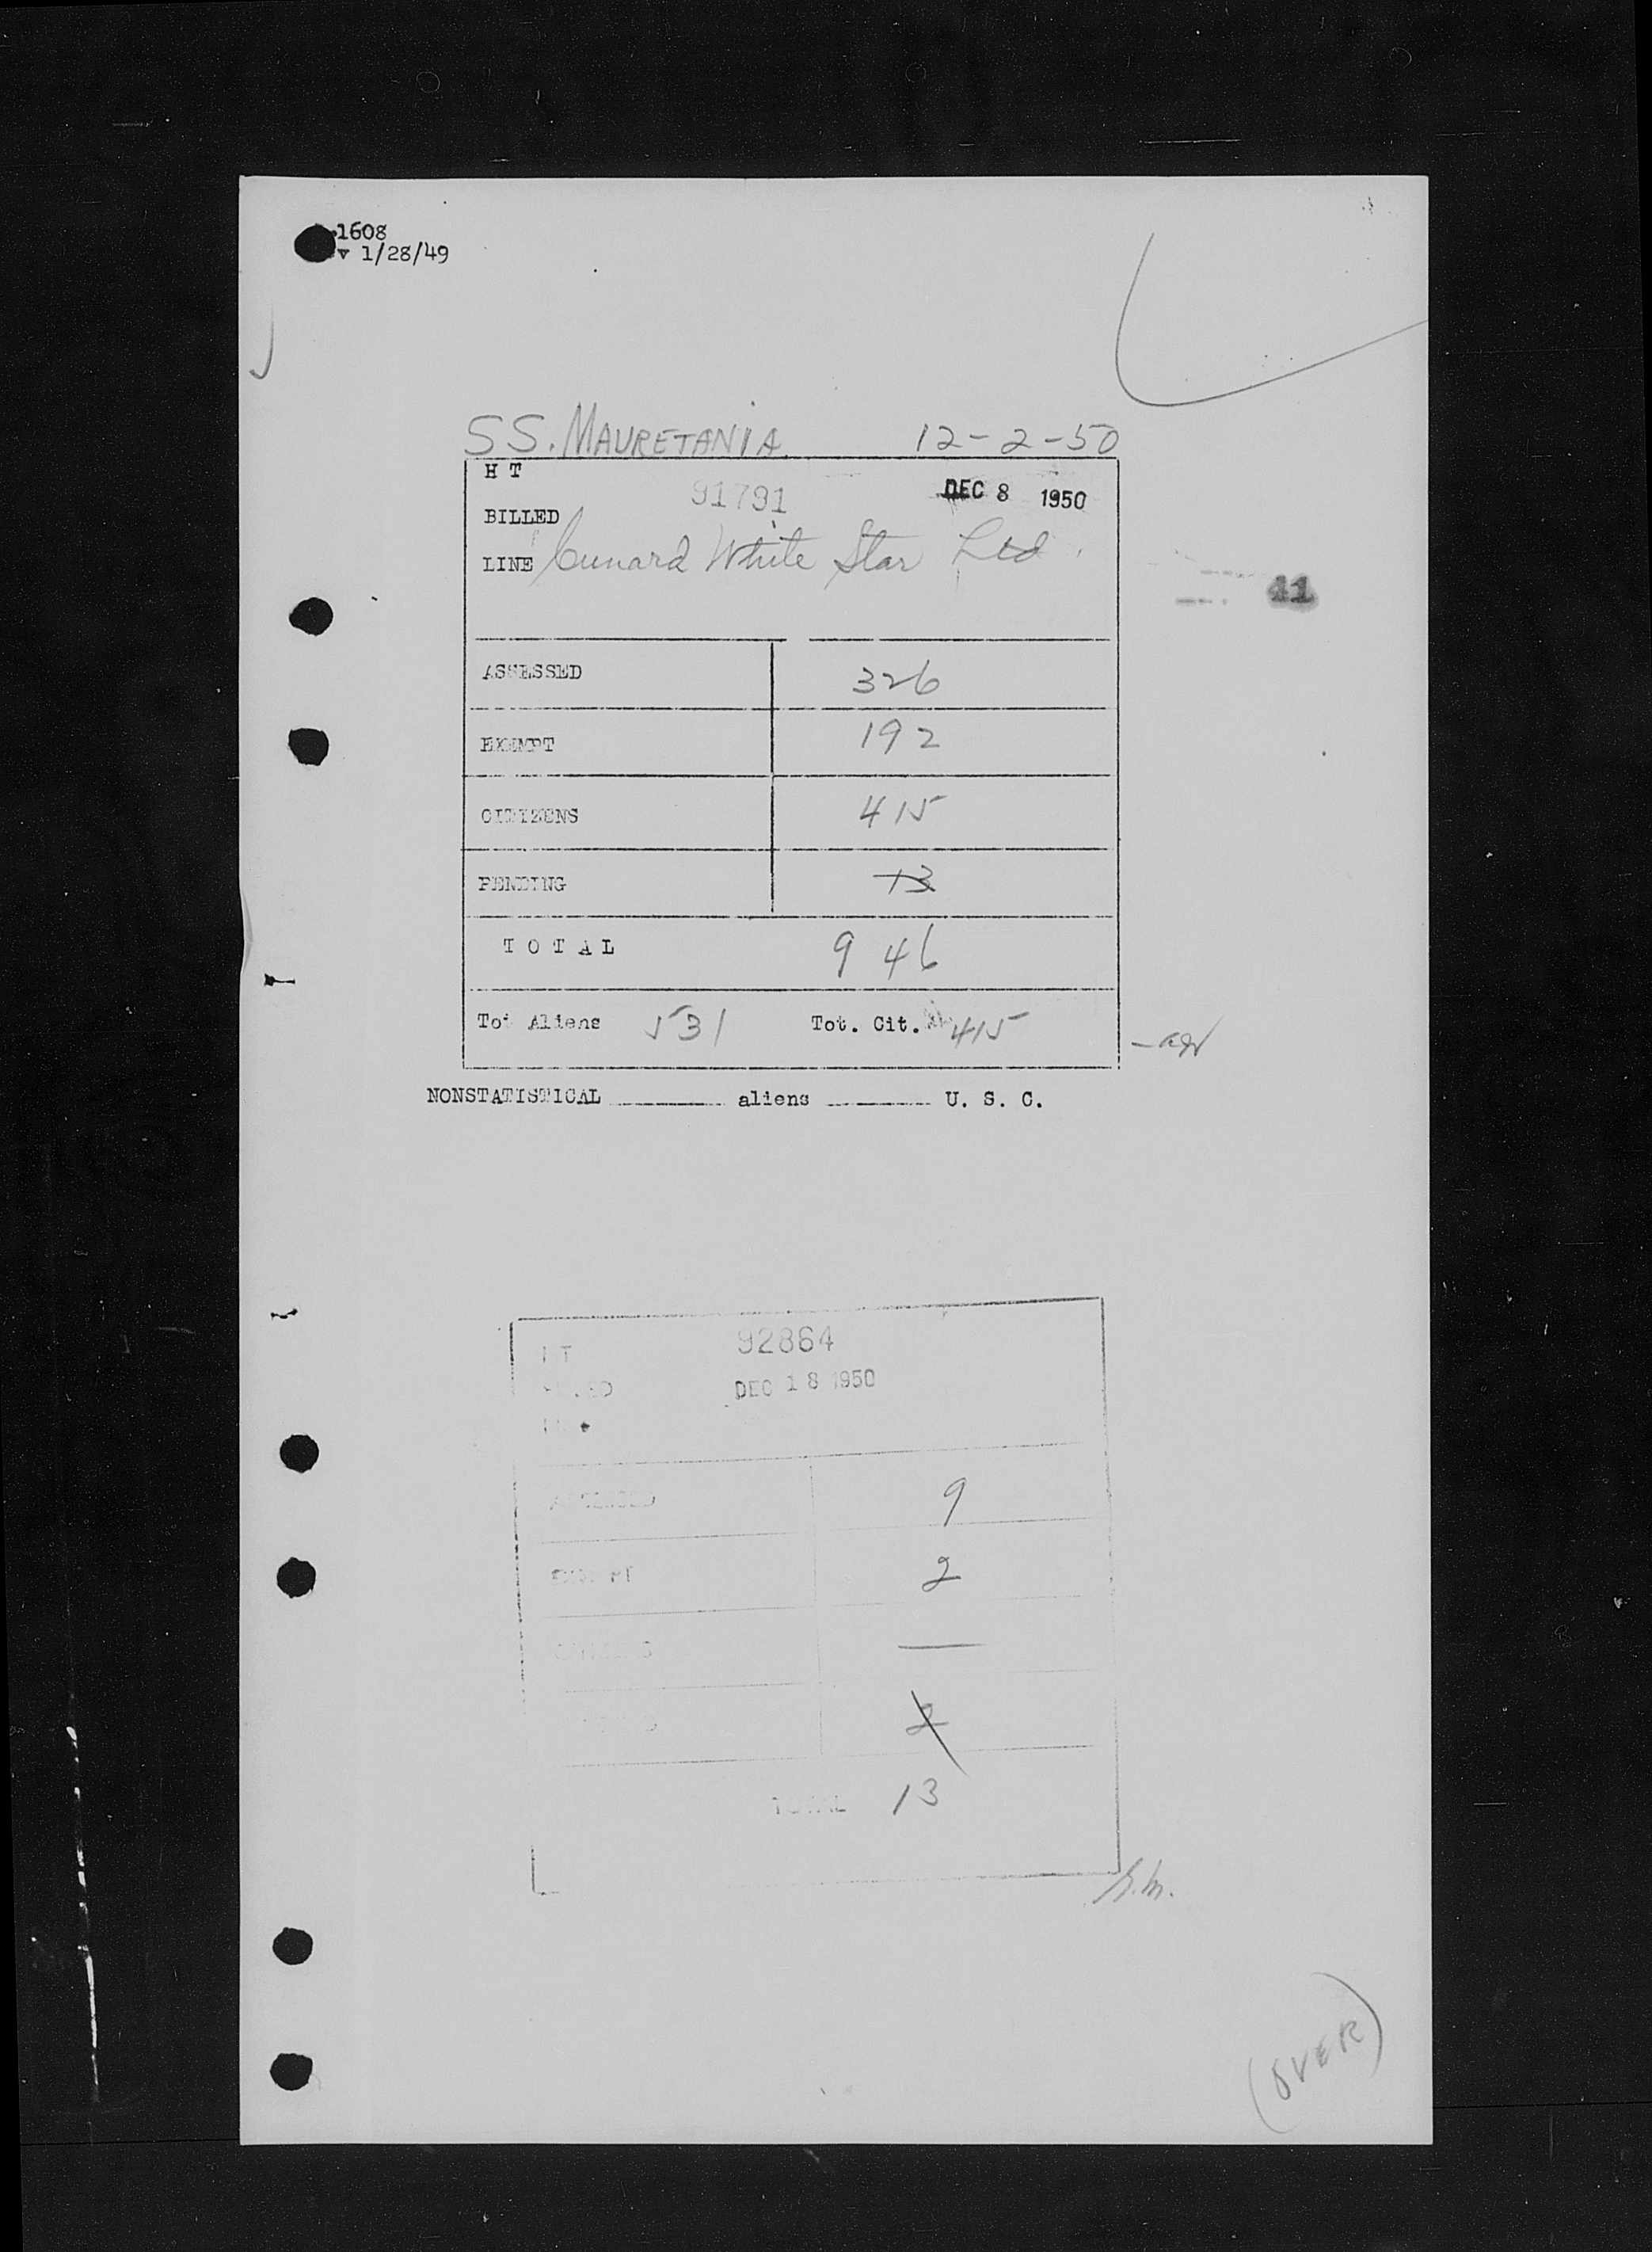 1608
1/28/49
SS. MAURETANIA 12-2-50
H T
91791 DEC 8 1950
BILLED
LINE Cunard White Star Ltd.
41
ASSESSED 326
EXEMPT 192
CITIZENS 415
PENDING 13
TOTAL 946
Tot Aliens 531 Tot. Cit. 415
NONSTATISTICAL aliens U. S. C.
92864
DEC 18 1950
ASSESSED 9
EXEMPT 2
2
TOTAL 13
(OVER)